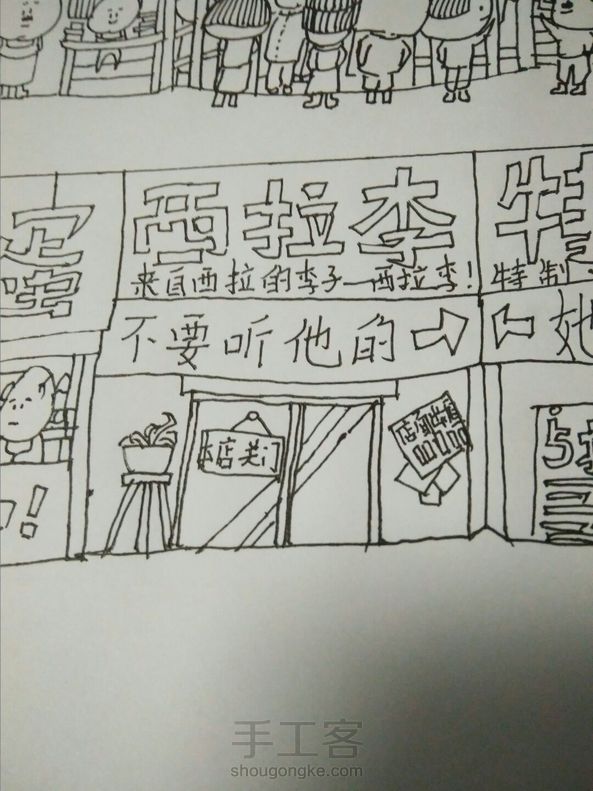 西拉李 特
来自西拉的李子—西拉李! 特制
不要听他的→ ←她
本店关门
手工客
shougongke.com